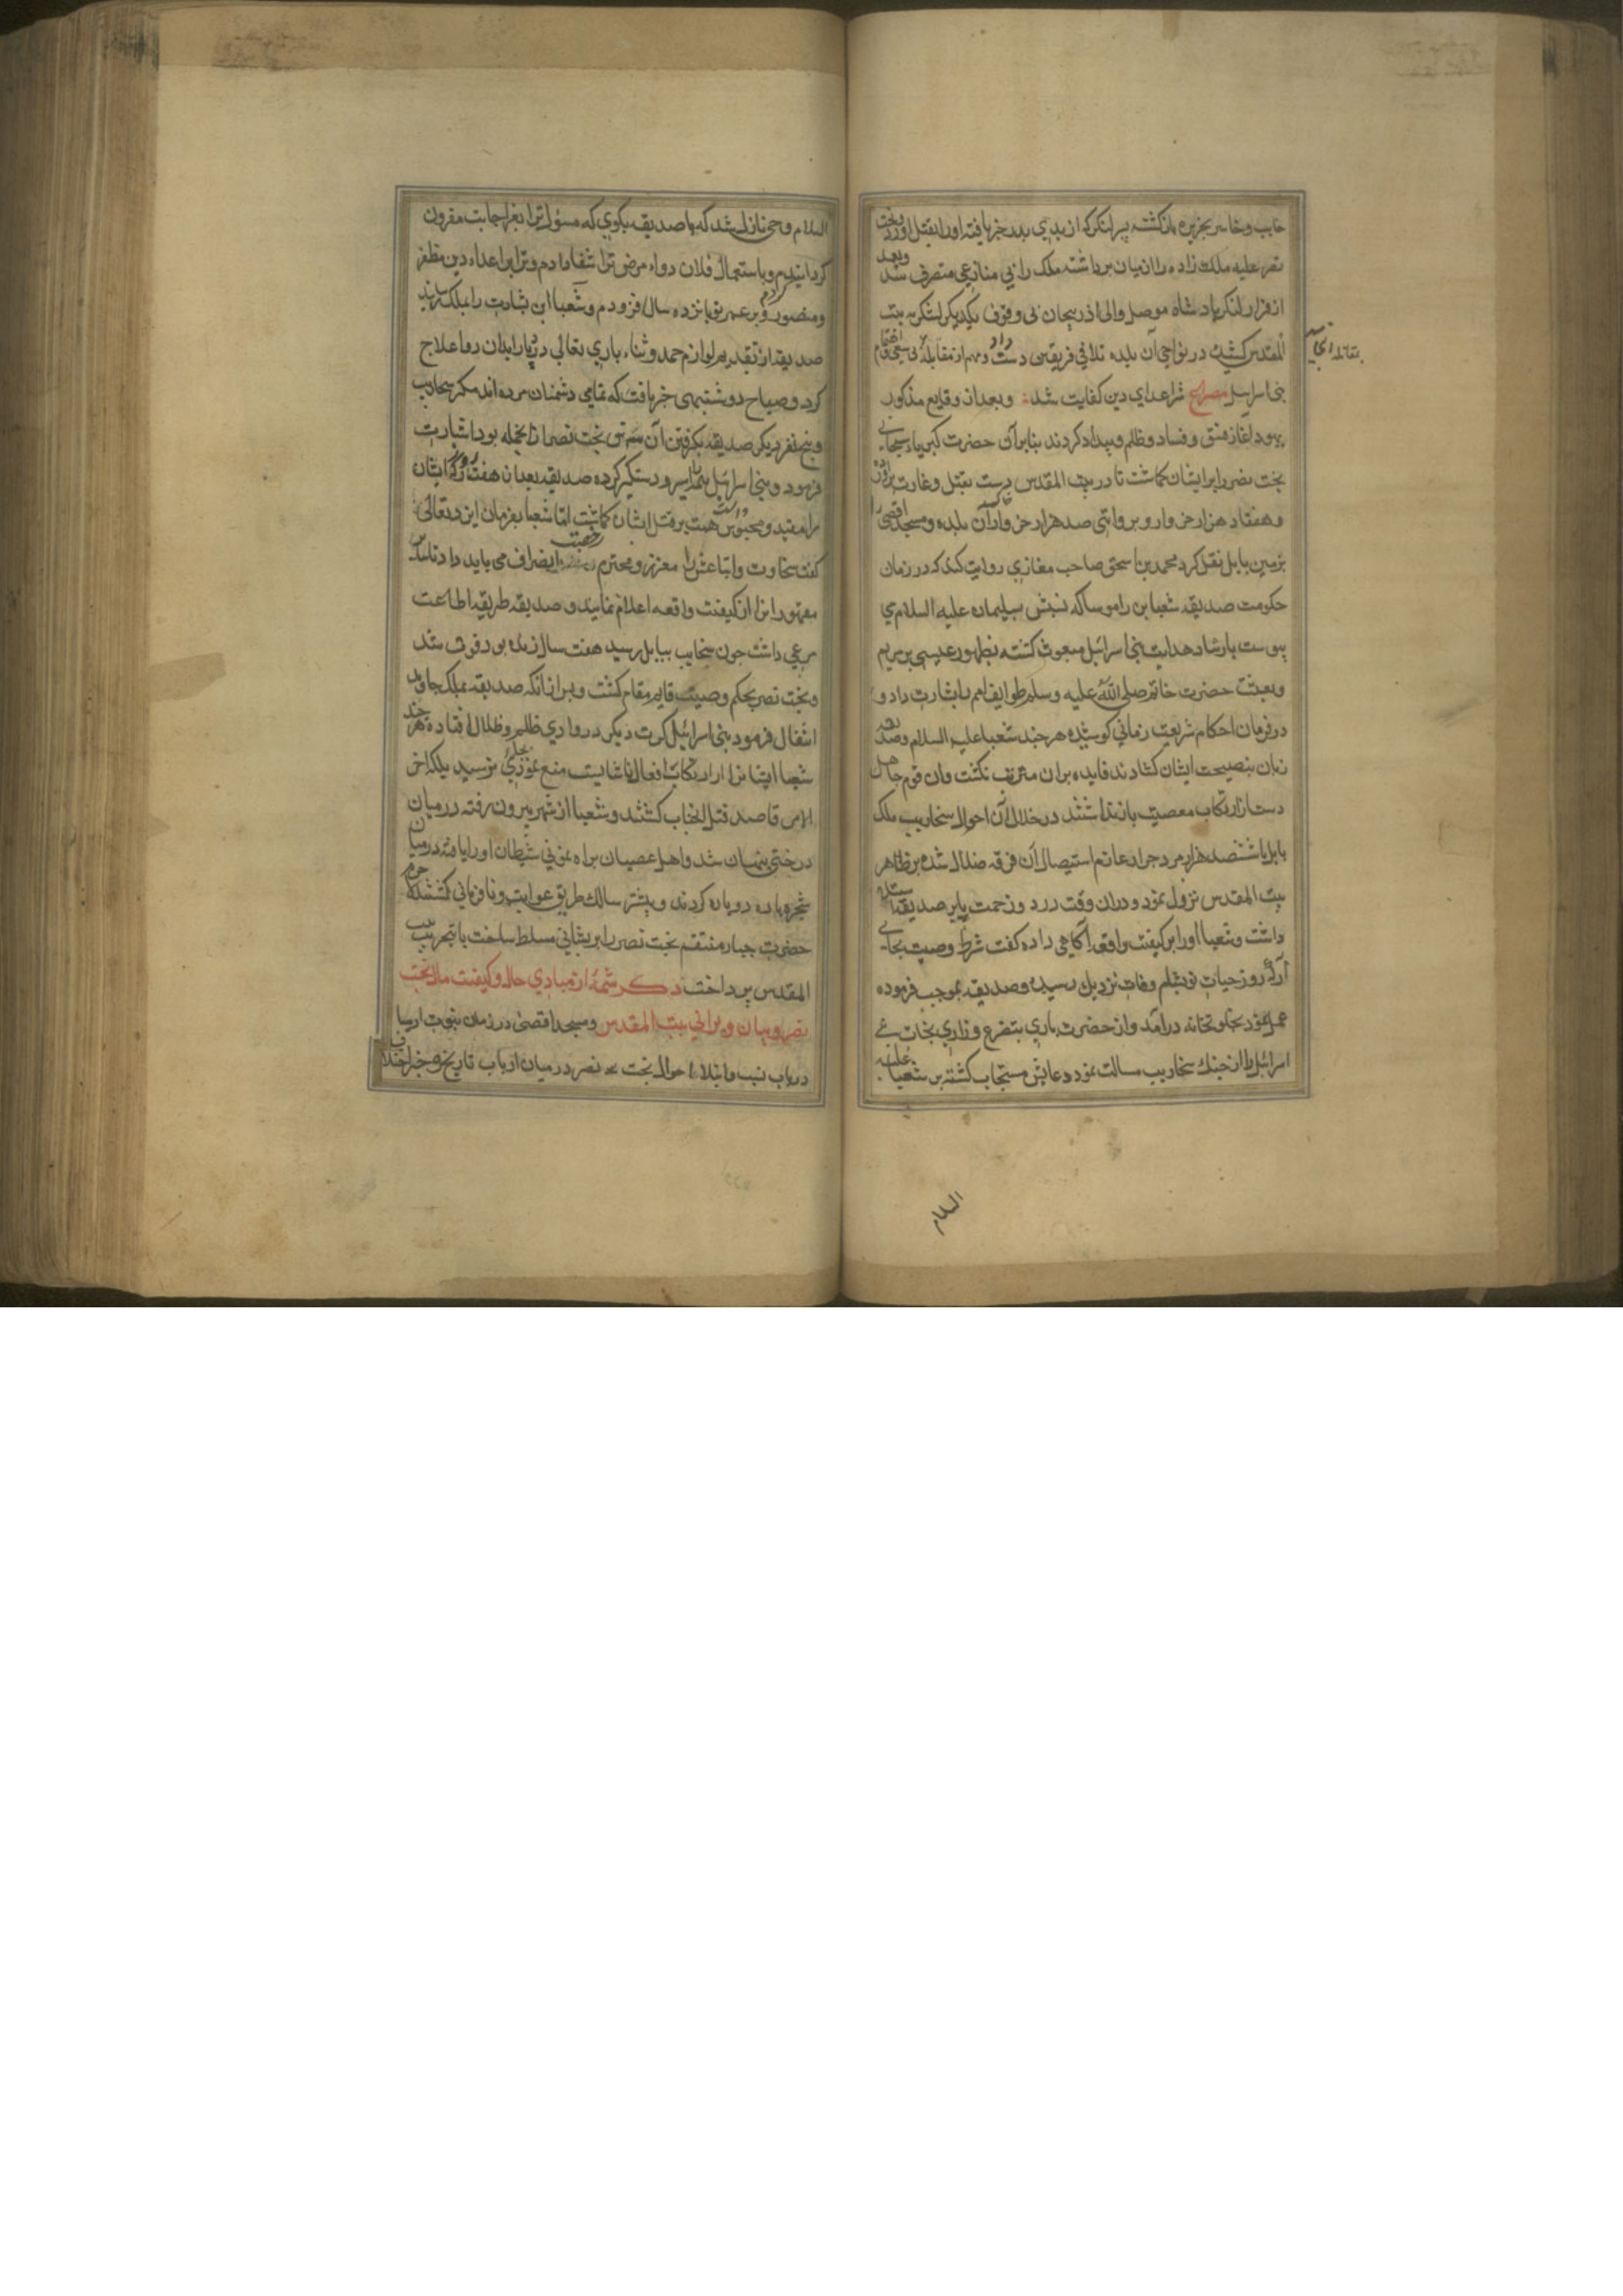 خایب و خاسر بجزیره بازکشت پسر لنکرک از بدی پدر خبر یافته او را بقتل اورد و بخت
نصر علیه ملک زاده را از میان برداشته ملک را بی منازعی متصرف شد و بعد
از فرار لشکر پادشاه موصل و والی اذربیجان بی وقوف یکدیکر لشکر به بیت
المقدس کشیدند در نواحی آن بلده تلاقی فریقین دست داد و مهم از مقابله بی سعی و اهتمام
بمقاتله انجامید
بنی اسرایل مصراع شر اعدای دین کفایت شد و بعد از وقایع مذکور
یهود اغاز فسق و فساد و ظلم و بیداد کردند بنابر آن حضرت کبریاء سبحانی
بخت نصر را بر ایشان کماشت تا در بیت المقدس دست بقتل و غارت براورد
و هفتاد هزار خروار و بروایتی صد هزار خروار از آن بلده و مسجد اقصی
بزمین بابل نقل کرد محمد بن اسحق صاحب مغازی روایت کند که در زمان
حکومت صدیقه شعیا بن راموسا که نسبش بسلیمان علیه السلام می
پیوست بارشاد هدایت بنی اسرائیل مبعوث کشته بظهور عیسی بن مریم
و بعثت حضرت خاتم صلی الله علیه و سلم طوایف امم را بشارت داد و
در فرمان احکام شریعت زمانی کوشیده هر چند شعیا علیه السلام و صدیقه
زبان بنصیحت ایشان کشادند فایده بران مترتب نکشت وان قوم جاهل
دست از ارتکاب معصیت باز نداشتند در خلال آن احوال سنخاریب ملک
بابل با ششصد هزار مرد جرار عازم استیصال آن فرقه ضلال شده بر ظاهر
بیت المقدس نزول نمود و دران وقت درد و زحمت پای بر صدیقه استیلا
داشت و شعیا او را بر کیفیت واقعه آکاهی داده کفت شرط وصیت بجای
آر که روز حیات تو بشام وفات نزدیک رسیده و صدیقه بموجب فرموده
عمل نمود بخلوتخانه درآمد و از حضرت باری بتضرع و زاری نجات بنی
اسرائیل را از جنک سنخاریب مسالت نمود دعایش مستجاب کشته بر شعیا علیه
السلام
السلام وحی نازل شد که با صدیقه بکوی که مسؤل ترا بعز اجابت مقرون
کردانیدم و باستعمال فلان دواء مرض ترا شفا دادم و ترا بر اعداء دین مظفر
و منصور کردم و بر عمر تو پانزده سال فزودم و شعیا این بشارت را بملک رسانید
صدیقه از تقدیم لوازم حمد و ثناء باری تعالی درد پا را بدان دوا علاج
کرد و صباح دوشنبهی خبر یافت که تمامی دشمنان مرده اند مکر سنحاریب
و پنج نفر دیکر صدیقه بکرفتن آن شش تن که بخت نصر از انجمله بود اشارت
فرمود و بنی اسرائیل تمام را اسیر و دستکیر کرده صدیقه بعد از هفت روز که ایشان
را مقید و محبوس داشت همت بر قتل ایشان کماشت اما شعیا بفرمان ایزد تعالی
کفت سنحاریب و اتباعش را معزز و محترم رخصت انصراف می باید داد تا سایر
مقهوران را از کیفیت واقعه اعلام نمایند و صدیقه طریقه اطاعت
مرعی داشت چون سنحاریب ببابل رسید هفت سال زنده بود فوت شد
و بخت نصر بحکم وصیت قایم مقام کشت و پس از آنکه صدیقه بملک جاوید
انتقال فرمود بنی اسرائیل کرت دیکر در وادی ظلم و ظلال افتاده هر چند
شعیا ایشانرا از ارتکاب افعال ناشایست منع نمود بجایی نرسید بلکه آخر
الامر قاصد قتل انجناب کشتند و شعیا از شهر بیرون رفته در میان
درختی پنهان شد و اهل عصیان براه نمونی شیطان او را یافته در میان
شجره پاره دو پاره کردند و بیشتر سالک طریق غوایت و نافرمانی کشتند لاجرم
حضرت جبار منتقم بخت نصر را بر ایشان مسلط ساخت تا بتخریب بیت
المقدس پرداخت ذکر شمهٔ از مبادی حال و کیفیت مال بخت
نصر و بیان ویرانی بیت المقدس و مسجد اقصی در زمان نبوت ارمیا
درباب نسب و ابتلاء احوال بخت نصر در میان ارباب تاریخ و خبر اختلاف